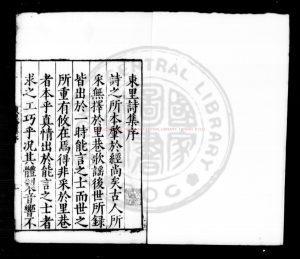 東里詩集序
詩之所本肇於經尚矣古人所
采無擇於里巷歌謠後世所錄
皆出於一時能言之士而世之
所重有攸在焉得非采於里巷
者本乎真情出於能言之士者
求之工巧乎況其體製音響不